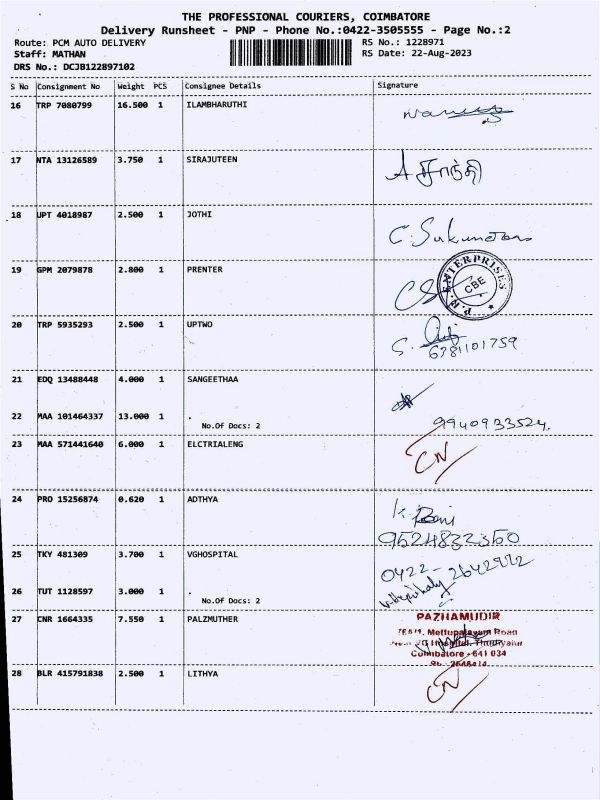 THE PROFESSIONAL COURIERS, COIMBATORE
Delivery Runsheet - PNP - Phone No.:0422-3505555 - Page No.:2
Route: PCM AUTO DELIVERY RS No.: 1228971
Staff: MATHAN RS Date: 22-Aug-2023
DRS No.: DCJB122897102
S No Consignment No Weight PCS Consignee Details Signature
16 TRP 7080799 16.500 1 ILAMBHARUTHI
17 NTA 13126589 3.750 1 SIRAJUTEEN
A சாந்தி
18 UPT 4018987 2.500 1 JOTHI
C. Sukumaran
19 GPM 2079878 2.800 1 PRENTER
P.R. ENTERPRISES
CBE
20 TRP 5935293 2.500 1 UPTWO
S.
6781101759
21 EDQ 13488448 4.000 1 SANGEETHAA
22 MAA 101464337 13.000 1 .
No.Of Docs: 2
9940933524.
23 MAA 571441640 6.000 1 ELCTRIALENG
CN
24 PRO 15256874 0.620 1 ADTHYA
K. Rani
9524832350
25 TKY 481309 3.700 1 VGHOSPITAL
0422-2642992
26 TUT 1128597 3.000 1 .
No.Of Docs: 2
27 CNR 1664335 7.550 1 PALZMUTHER
PAZHAMUDIR
Mettupalayam Road
Hospital, Thudiyalur
Coimbatore - 641 034
28 BLR 415791838 2.500 1 LITHYA
CN